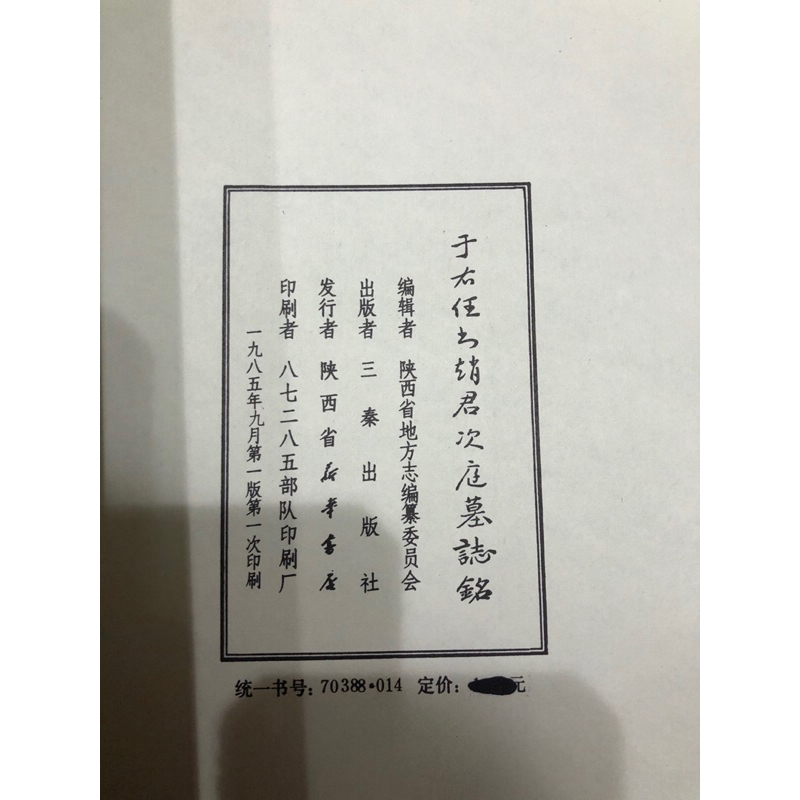 于右任书趙君次庭墓誌銘
编辑者 陕西省地方志编纂委员会
出版者 三秦出版社
发行者 陕西省新华书店
印刷者 八七二八五部队印刷厂
一九八五年九月第一版第一次印刷
统一书号：70388·014 定价：元